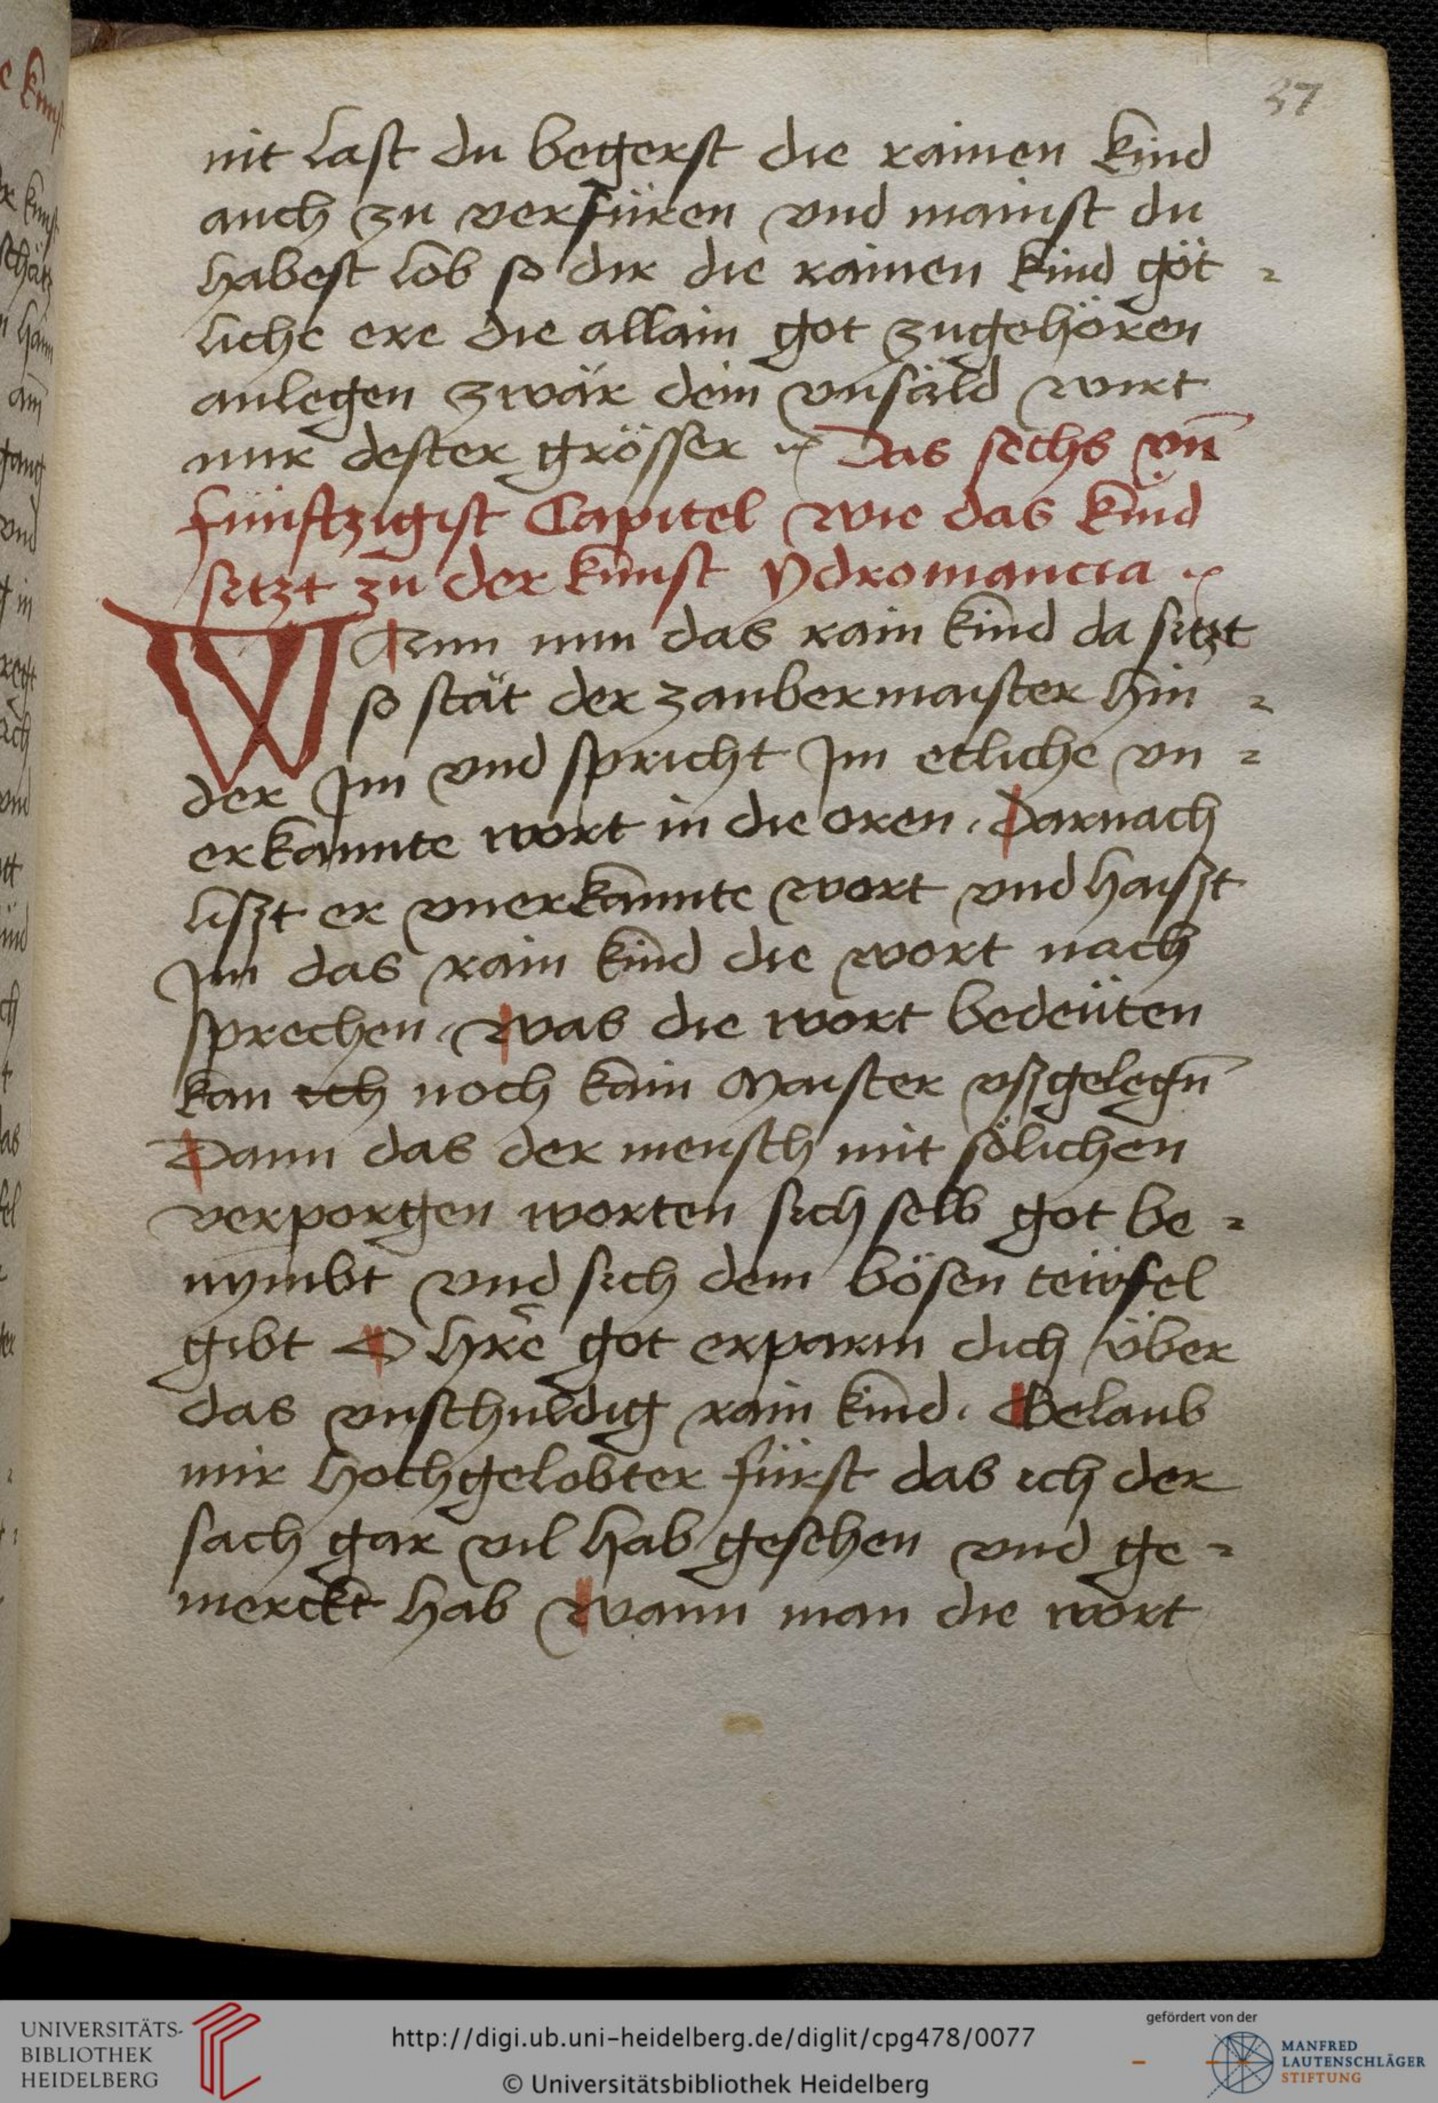 37
nit last du begerst die rainen kind
auch zu verfüren vnd mainst du
habest lob so dir die rainen kind göt =
liche ere die allain got zugehören
anlegen zwär dein vnsäld wirt
nur dester grösser Das sechs vn̄
fünftzigist Capitel wie das kind
setzt zu der kunst ydromancia
WEnn nun das rain kind da sitzt
so stät der zaubermaister hin =
der Im vnd spricht Im etliche vn =
erkannte wort in die oren. Darnach
liszt er vnerkannte wort vnd haiszt
Im das rain kind die wort nach
sprechen. was die wort bedeüten
kan ich noch kain Maister vszgelegn̄
Dann das der mensch mit sölichen
verporgen worten sich selb got be =
nymbt vnd sich dem bösen teüfel
gibt O hre got erparm dich über
das vnschuldig rain kind. Gelaub
mir hochgelobter fürst das ich der
sach gar vil hab gesehen vnd ge =
merckt hab wann man die wort
UNIVERSITÄTS-
BIBLIOTHEK
HEIDELBERG
http://digi.ub.uni-heidelberg.de/diglit/cpg478/0077
© Universitätsbibliothek Heidelberg
gefördert von der
MANFRED
LAUTENSCHLÄGER
STIFTUNG